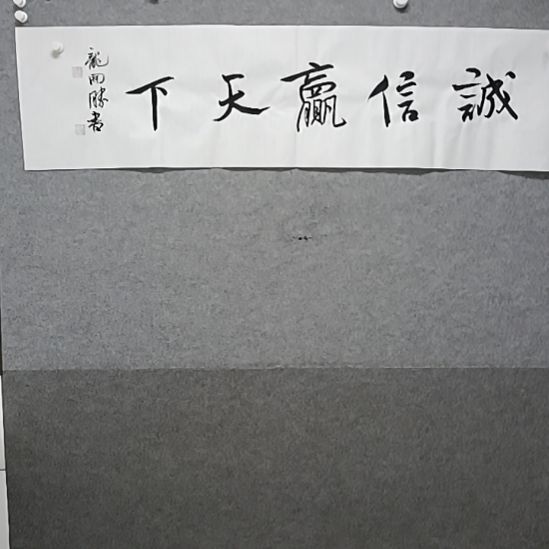 誠信贏天下
龍雨勝書